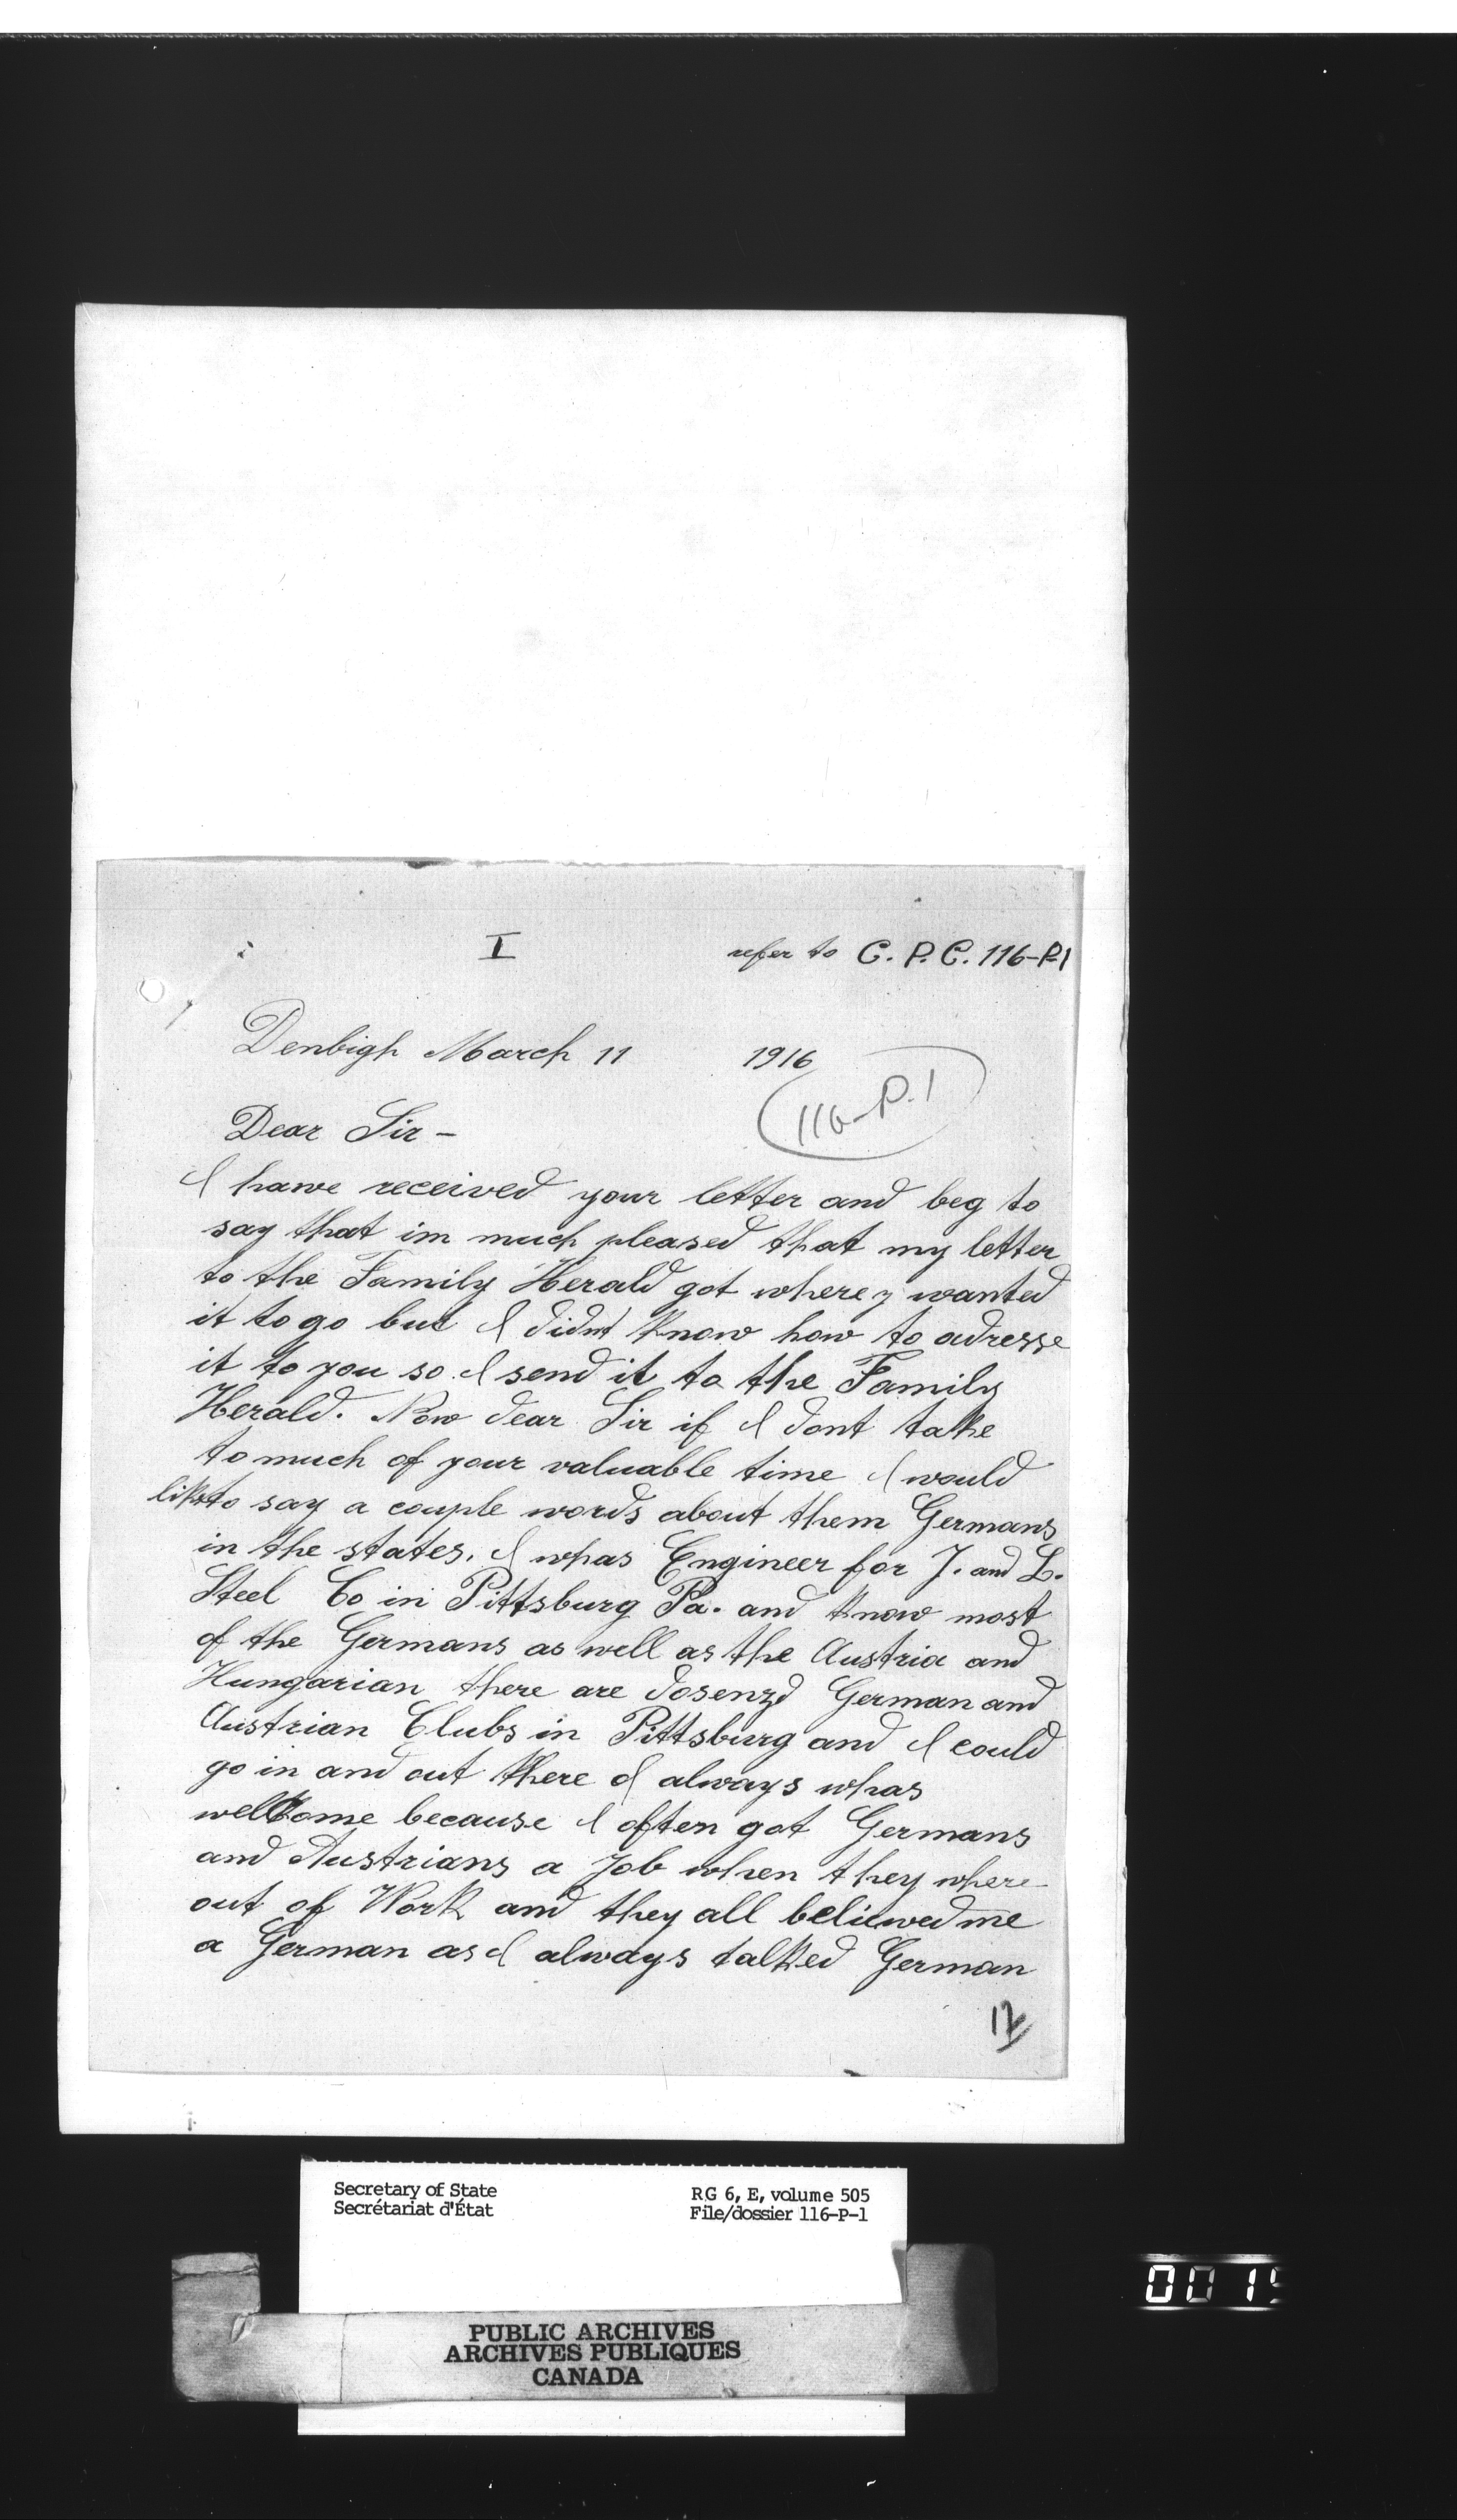 I
refer to C. P. C. 116-P.1
Denbigh March 11 1916
116-P.1
Dear Sir -
I hawe received your letter and beg to
say that im much pleased that my letter
to the Family Herald got where y wanted
it to go but I didnt know how to adresse
it to you so I send it to the Family
Herald. Now dear Sir if I dont take
to much of your valuable time I would
like to say a couple words about them Germans
in the states. I whas Engineer for J. and L.
Steel Co in Pittsburg Pa. and know most
of the Germans as well as the Austria and
Hungarian there are dosenzd German and
Austrian Clubs in Pittsburg and I could
go in and out there I always whas
wellcome because I often got Germans
and Austrians a Job when they where
out of Work and they all beliewed me
a German as I always talked German
12
Secretary of State
Secrétariat d'État
RG 6, E, volume 505
File/dossier 116-P-1
PUBLIC ARCHIVES
ARCHIVES PUBLIQUES
CANADA
001